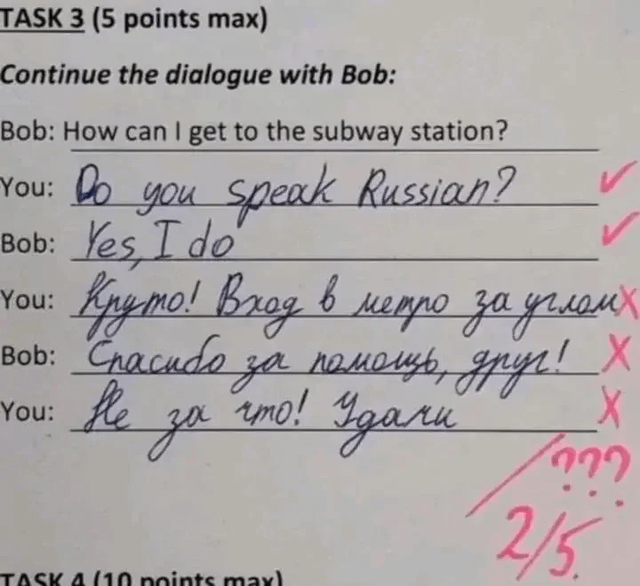 TASK 3 (5 points max)
Continue the dialogue with Bob:
Bob: How can I get to the subway station?
You: Do you speak Russian? ✓
Bob: Yes, I do ✓
You: Круто! Вход в метро за углом X
Bob: Спасибо за помощь, друг! X
You: Не за что! Удачи X
???
2/5.
TASK 4 (10 points max)